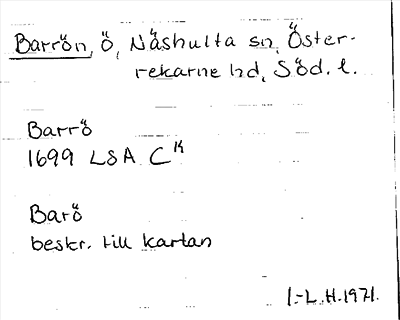 Barrön, ö, Näshulta sn, Öster-
rekarne hd, Söd. l.
Barrö
1699 LSA C¹⁴
Barö
beskr. till kartan
I.-L. H. 1971.